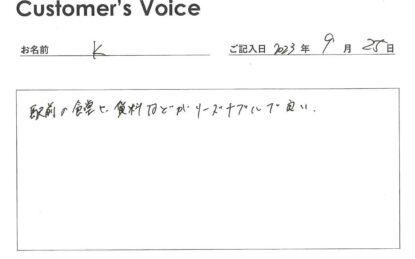 Customer's Voice
お名前 K ご記入日 2023年 9月 25日
駅前の食堂で、食料などがリーズナブルで良い.